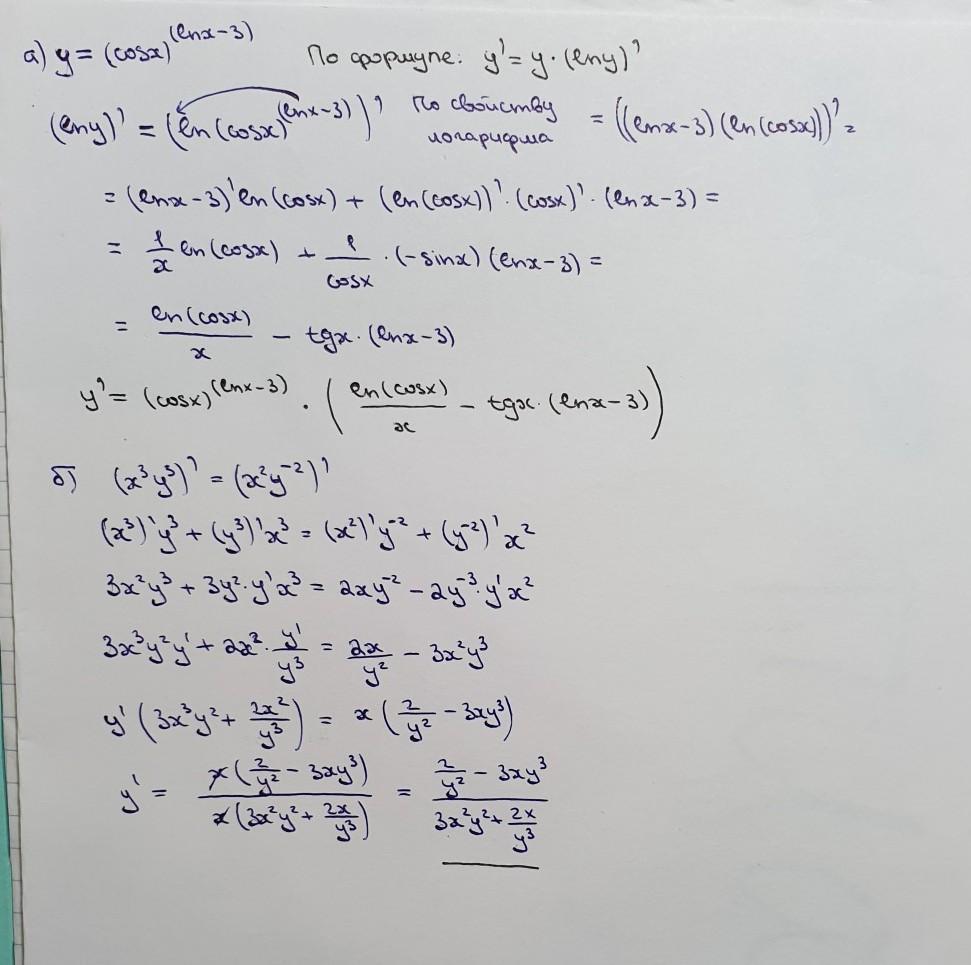 а) y = (cosx)^(lnx-3) По формуле: y' = y · (lny)'
(lny)' = (ln(cosx)^(lnx-3))' По свойству логарифма = ((lnx-3)(ln(cosx)))' =
= (lnx-3)' ln(cosx) + (ln(cosx))' · (cosx)' · (lnx-3) =
= 1/x ln(cosx) + 1/cosx · (-sinx)(lnx-3) =
= ln(cosx)/x - tgx · (lnx-3)
y' = (cosx)^(lnx-3) · (ln(cosx)/x - tgx · (lnx-3))
б) (x³y³)' = (x²y⁻²)'
(x³)'y³ + (y³)'x³ = (x²)'y⁻² + (y⁻²)'x²
3x²y³ + 3y² · y'x³ = 2xy⁻² - 2y⁻³ · y'x²
3x³y²y' + 2x² · y'/y³ = 2x/y² - 3x²y³
y'(3x³y² + 2x²/y³) = x(2/y² - 3xy³)
y' = x(2/y² - 3xy³) / x(3x²y² + 2x/y³) = (2/y² - 3xy³) / (3x²y² + 2x/y³)